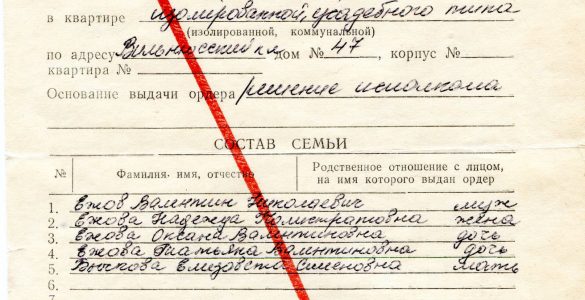 в квартире изолированной, усадебного типа
(изолированной, коммунальной)
по адресу Вильнюсский кл дом № 47, корпус №
квартира №
Основание выдачи ордера решение исполкома
СОСТАВ СЕМЬИ
№ Фамилия, имя, отчество Родственное отношение с лицом, на имя которого выдан ордер
1. Ежов Валентин Николаевич муж
2. Ежова Надежда жена
3. Ежова Оксана Валентиновна дочь
4. Ежова Татьяна Валентиновна дочь
5. Бычкова Елизавета Семеновна мать
6.